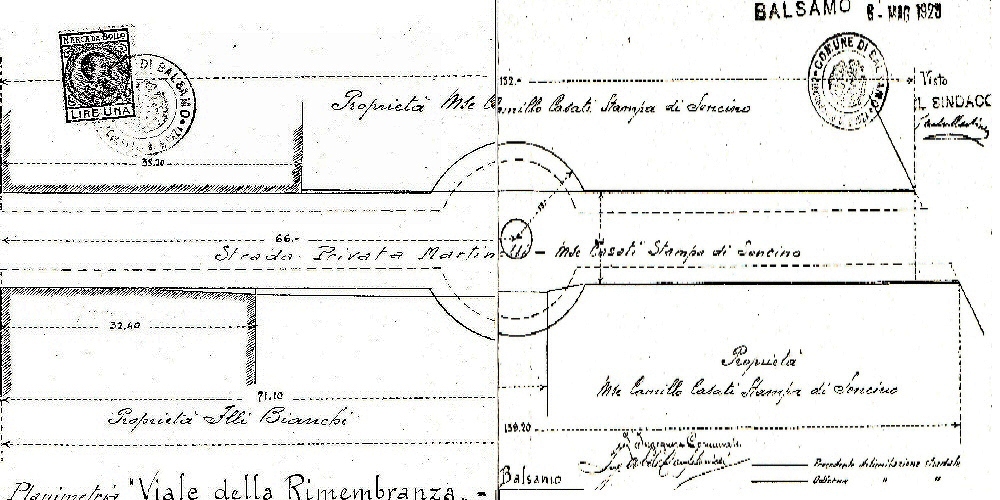 BALSAMO 8 - MAG 1929
MARCA DA BOLLO
LIRE UNA
DI BALSAMO
COMUNE DI BALSAMO
132.-
Visto
IL SINDACO
Proprietà Mse Camillo Casati Stampa di Soncino
35.20
66.-
Strada Privata Martinelli - Mse Casati Stampa di Soncino
32.40
71.10
Proprietà Flli Bianchi
Proprietà
Mse Camillo Casati Stampa di Soncino
139.20
Ingegnere Comunale
Balsamo
Precedente delimitazione stradale
Odierna " "
Planimetria "Viale della Rimembranza" -